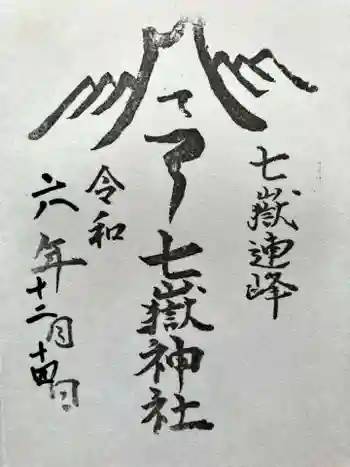 七嶽連峰
七嶽神社
令和
六年
十二月十四日